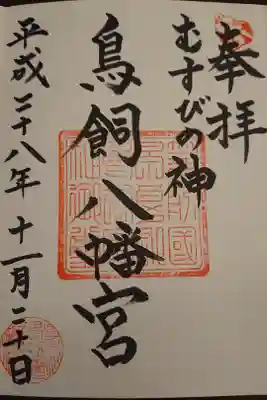 奉拝
むすびの神
鳥飼八幡宮
平成二十八年十一月二十日